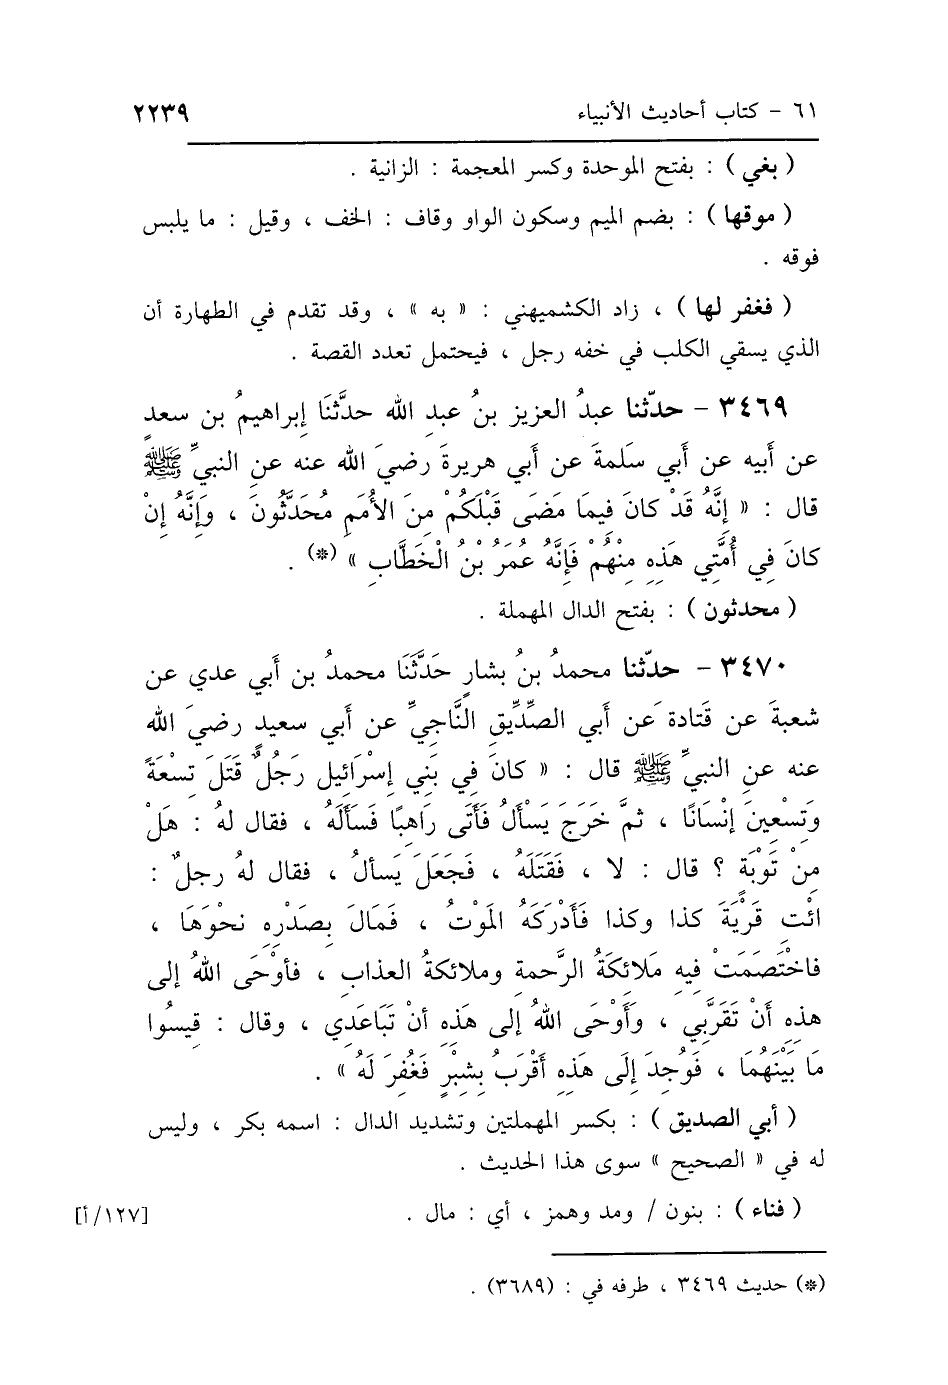 ٦١ - كتاب أحاديث الأنبياء ٢٢٣٩
( بغي ) : بفتح الموحدة وكسر المعجمة : الزانية .
( موقها ) : بضم الميم وسكون الواو وقاف : الخف ، وقيل : ما يلبس
فوقه .
( فغفر لها ) ، زاد الكشميهني : « به » ، وقد تقدم في الطهارة أن
الذي يسقي الكلب في خفه رجل ، فيحتمل تعدد القصة .
٣٤٦٩ - حدّثنا عبدُ العزيز بنُ عبدِ الله حدَّثَنَا إبراهيمُ بن سعدٍ
عن أبيه عن أَبي سَلَمةَ عن أَبي هريرةَ رضيَ الله عنه عنِ النبيِّ ﷺ
قال : « إنَّهُ قَدْ كانَ فِيمَا مَضَى قَبْلَكُمْ مِنَ الأُمَمِ مُحَدَّثُونَ ، وَإِنَّهُ إِنْ
كانَ فِي أُمَّتِي هَذِهِ مِنْهُمْ فَإِنَّهُ عُمَرُ بْنُ الْخَطَّابِ » (*) .
( محدثون ) : بفتح الدال المهملة .
٣٤٧٠ - حدّثنا محمدُ بنُ بشارٍ حَدَّثَنَا محمدُ بن أَبي عدي عن
شعبةَ عن قَتادة عن أَبي الصِّدِّيقِ النَّاجيِّ عن أَبي سعيدٍ رضيَ الله
عنه عنِ النبيِّ ﷺ قال : « كانَ فِي بَنِي إِسْرَائِيل رَجُلٌ قَتَلَ تِسْعَةً
وَتِسْعِينَ إِنْسَانًا ، ثمَّ خَرَجَ يَسْأَلُ فَأَتَى رَاهِبًا فَسَأَلَهُ ، فقال لهُ : هَلْ
مِنْ تَوْبَةٍ ؟ قال : لا ، فَقَتَلَهُ ، فَجَعَلَ يَسألُ ، فقال لهُ رجلٌ :
ائْتِ قَرْيَةَ كذا وكذا فَأَدْرَكَهُ المَوْتُ ، فَمَالَ بِصَدْرِهِ نحْوَهَا ،
فاخْتَصَمَتْ فِيهِ مَلائكَةُ الرَّحمةِ وملائكةُ العذاب ، فأوْحَى اللهُ إلى
هذِهِ أَنْ تَقَرَّبي ، وَأَوْحَى اللهُ إلى هَذِهِ أنْ تَبَاعَدِي ، وقال : قِيسُوا
مَا بَيْنَهُمَا ، فَوُجِدَ إلَى هَذِهِ أَقْرَبُ بِشِبْرٍ فَغُفِرَ لَهُ » .
( أبي الصديق ) : بكسر المهملتين وتشديد الدال : اسمه بكر ، وليس
له في « الصحيح » سوى هذا الحديث .
( فناء ) : بنون / ومد وهمز ، أي : مال . [١٢٧/أ]
(*) حديث ٣٤٦٩ ، طرفه في : (٣٦٨٩) .